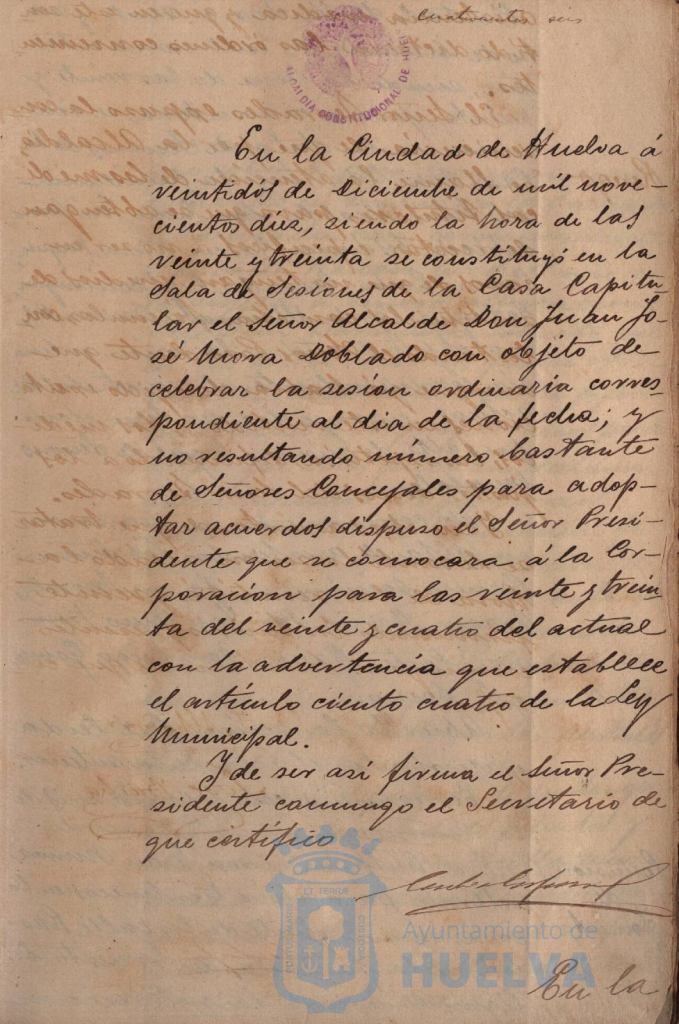 cuatrocientos seis
ALCALDÍA CONSTITUCIONAL DE HUELVA
En la Ciudad de Huelva á
veintidós de Diciembre de mil nove-
cientos diez, siendo la hora de las
veinte y treinta se constituyó en la
Sala de Sesiones de la Casa Capitu-
lar el Señor Alcalde Don Juan Jo-
sé Mora Doblado con objeto de
celebrar la sesion ordinaria corres-
pondiente al dia de la fecha; y
no resultando número bastante
de Señores Concejales para adop-
tar acuerdos dispuso el Señor Presi-
dente que se convocara á la Cor-
poración para las veinte y trein-
ta del veinte y cuatro del actual
con la advertencia que establece
el artículo ciento cuatro de la Ley
Municipal.
Y de ser así firma el Señor Pre-
sidente conmigo el Secretario de
que certifico
Ayuntamiento de
HUELVA
En la